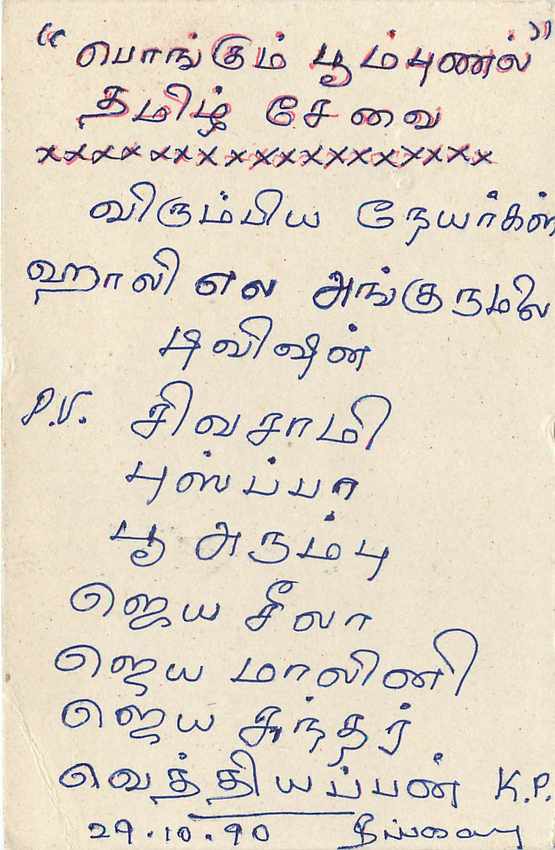 "பொங்கும் பூம்புணல்"
தமிழ் சேவை
xxxxxxxxxxxxxxxxxxx
விரும்பிய நேயர்கள்
ஹாலி எல அங்குருமலை
டிவிஷன்
P.V. சிவசாமி
புஸ்ப்பா
பூ அரும்பு
ஜெய சீலா
ஜெய மாலினி
ஜெய சுந்தர்
வெத்தியப்பன் K.P.
29.10.90